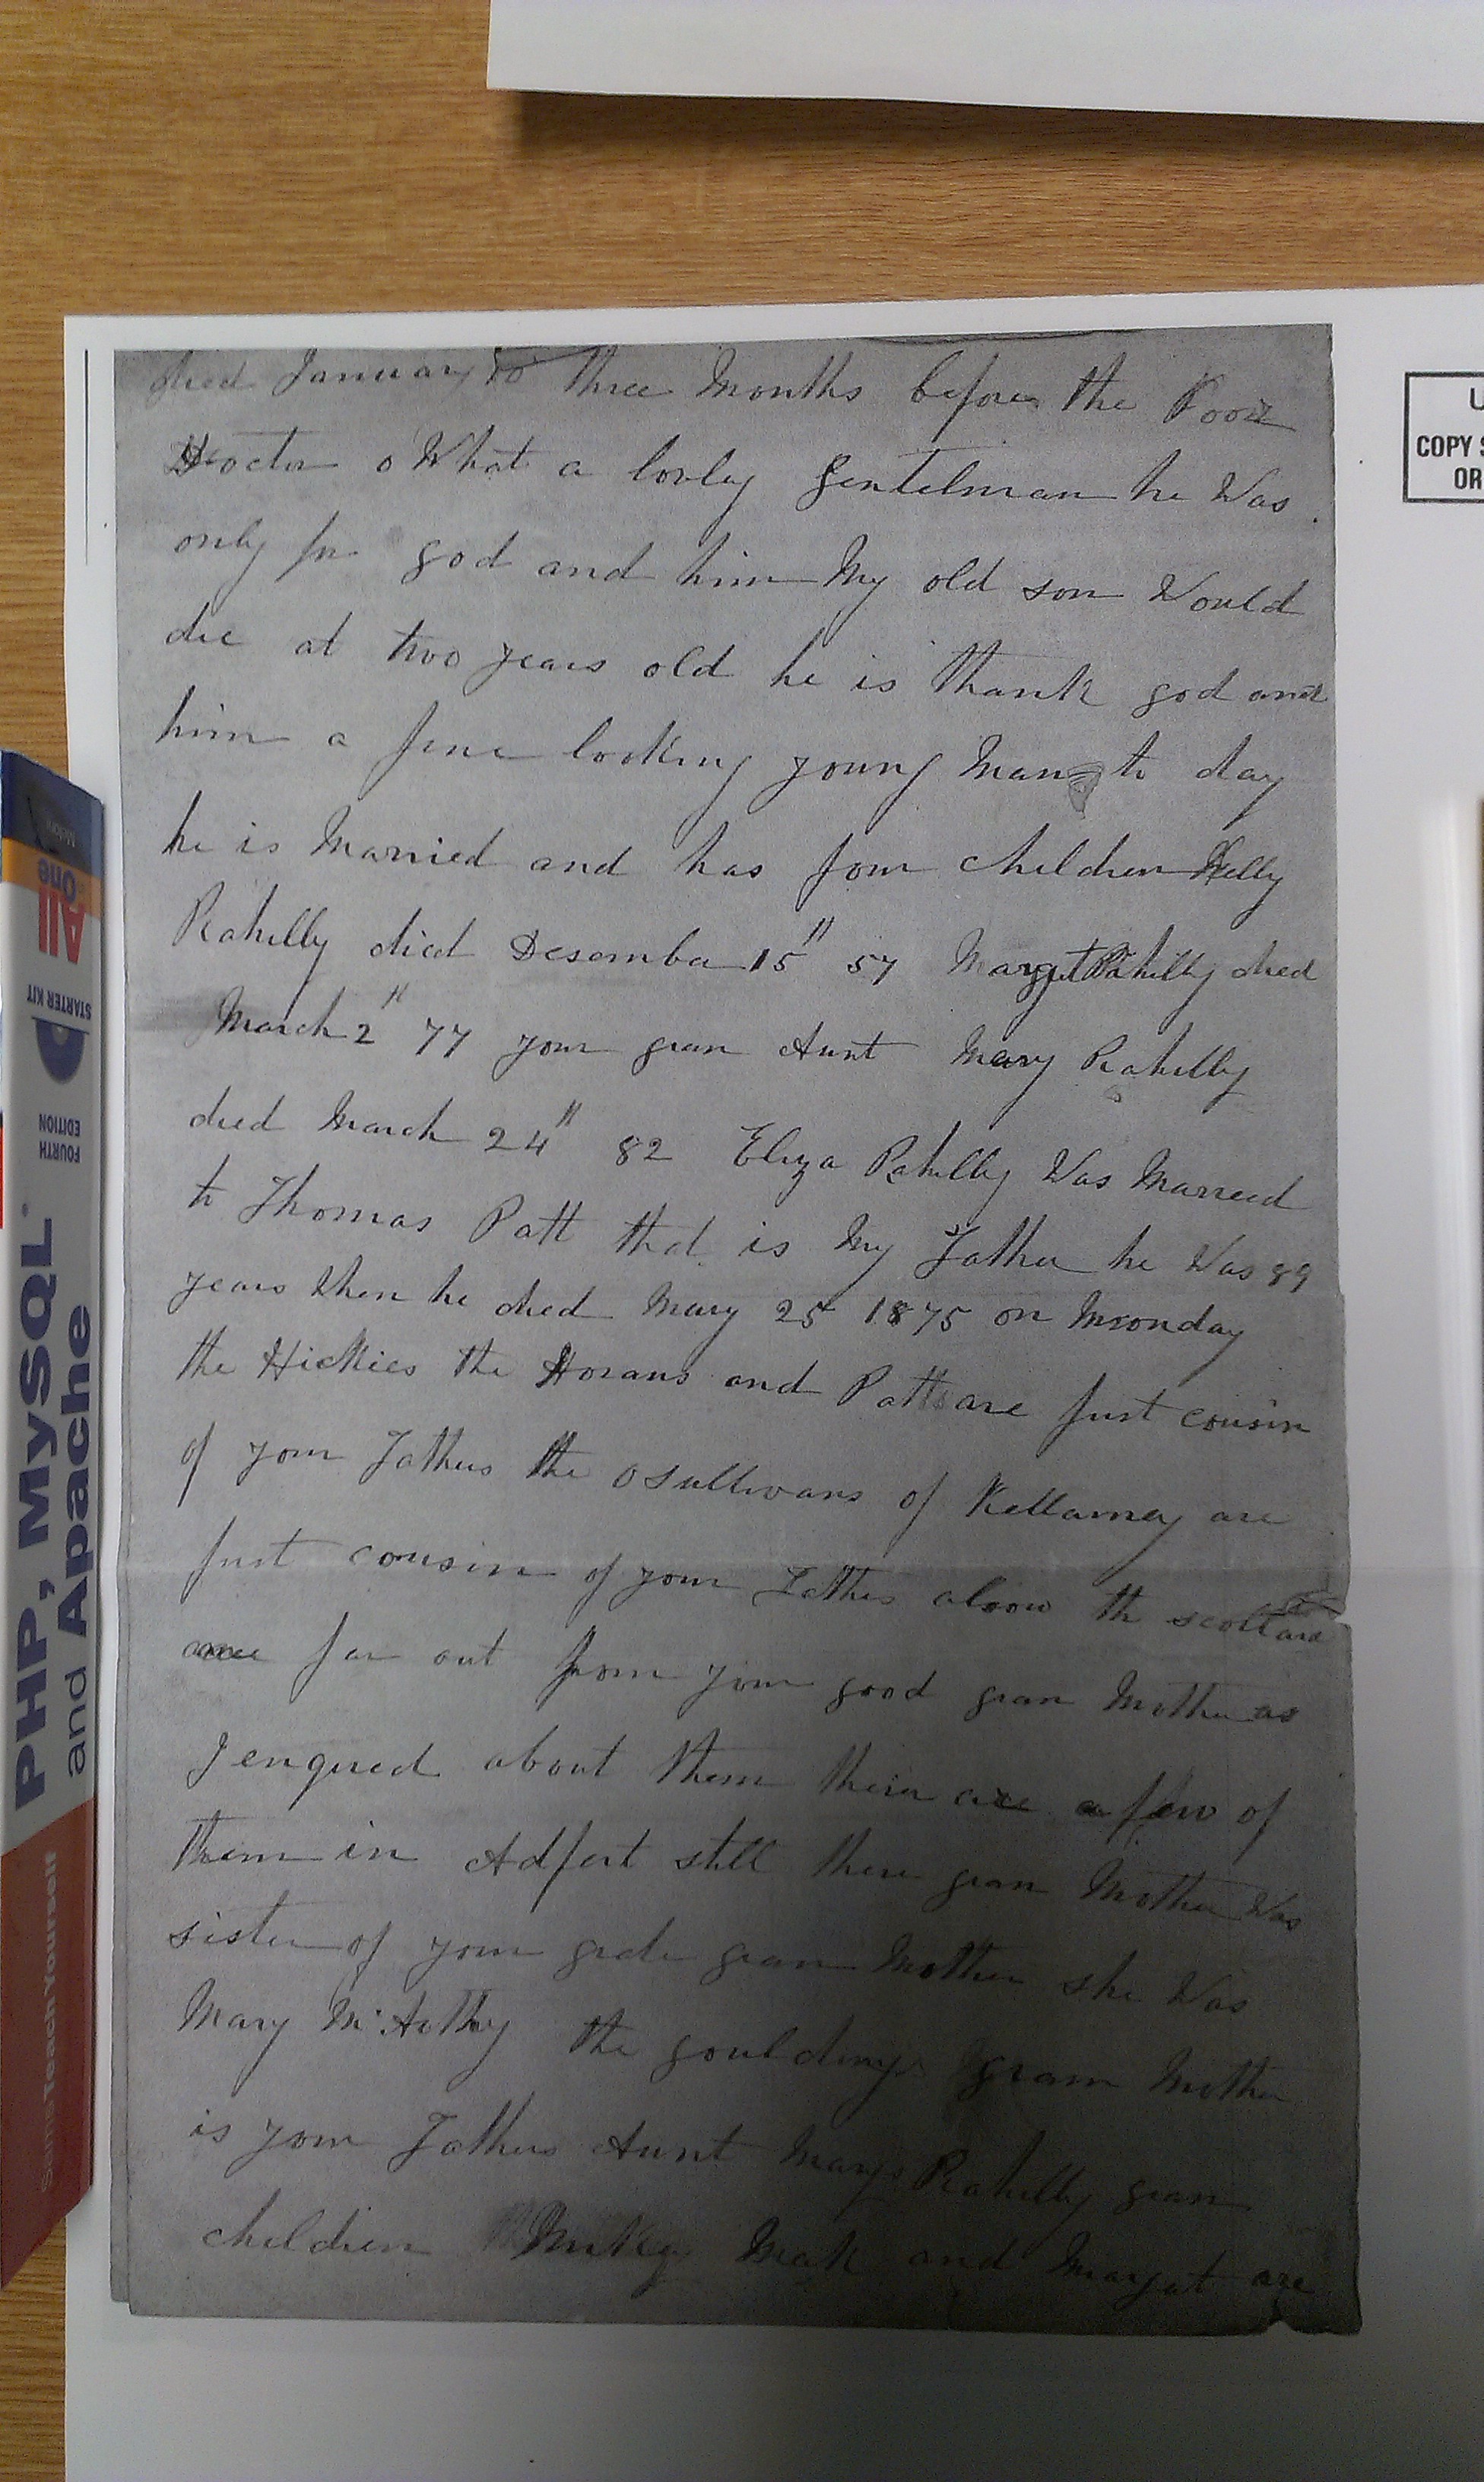 died January three Months before the Poor
Doctor o What a lovly gentelman he Was
only for god and him My old son Would
die at two years old he is thank god and
him a fine looking young Man to day
he is Married and has four children Nelly
Rahilly died Desember 15" 57 Margret Rahilly died
March 2" 77 your gran Aunt Mary Rahilly
died March 24" 82 Eliza Rahilly Was Married
to Thomas Patt that is My Father he Was 89
years When he died May 25 1875 on Monday
the Hickies the Horans and Patts are first cousin
of your Fathers the O Sullivans of Killarney are
first cousin of your Fathers the scotts are
far out from your good gran Mother as
I enqired about them their are a few of
them in Adfert still there gran Mother Was
sister of your grate gran Mother she Was
Mary McArthy the gouldings gran Mother
is your Fathers Aunt Marys Rahilly gran
children Mikey and Margat are
U
COPY S
OR
Meloni
All
One
STARTER KIT
FOURTH
EDITION
PHP, MySQL
and Apache
Sams Teach Yourself